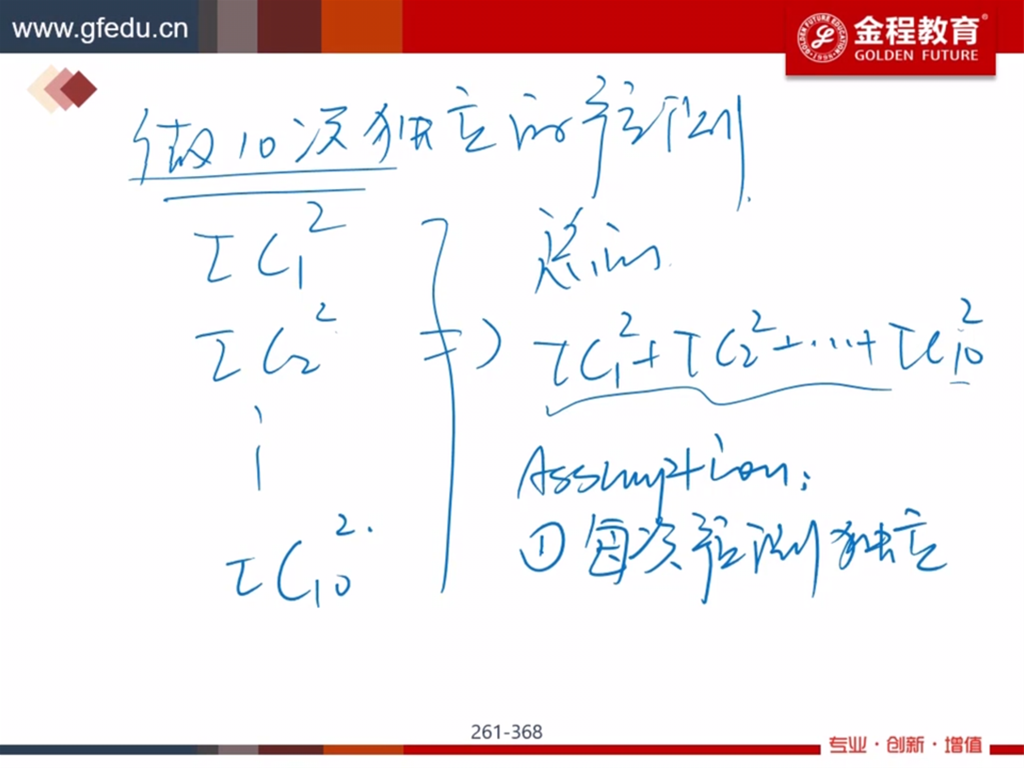 www.gfedu.cn
金程教育
GOLDEN FUTURE
做10次独立的预测
IC₁²
IC₂²
⋮
IC₁₀²
=>
总的
IC₁²+IC₂²+...+IC₁₀²
Assumption:
① 每次预测独立
261-368
专业·创新·增值